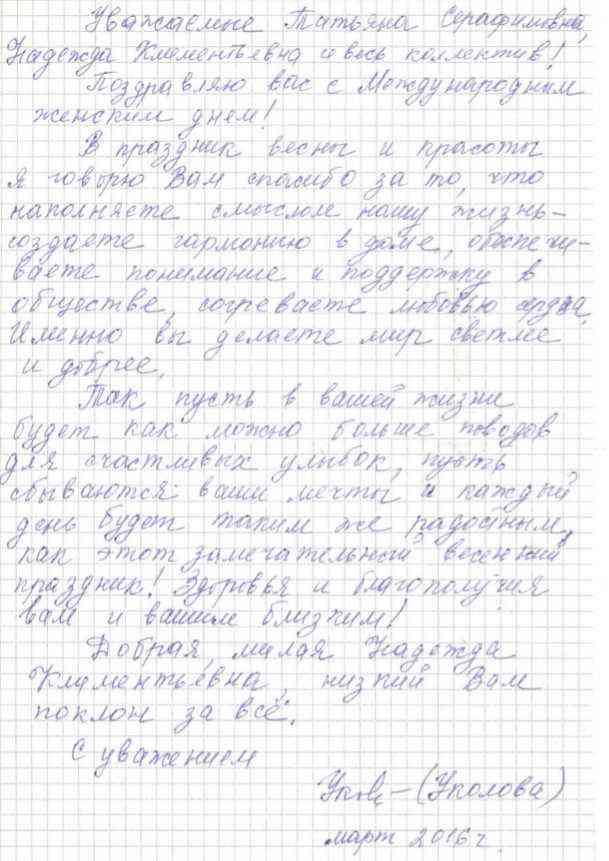 Уважаемые Татьяна Серафимовна,
Надежда Климентьевна и весь коллектив!
Поздравляю вас с Международным
женским днем!
В праздник весны и красоты
я говорю Вам спасибо за то, что
наполняете смыслом нашу жизнь –
создаете гармонию в доме, обеспечи-
ваете понимание и поддержку в
обществе, согреваете любовью сердца.
Именно вы делаете мир светлее
и добрее.
Так пусть в вашей жизни
будет как можно больше поводов
для счастливых улыбок, пусть
сбываются ваши мечты и каждый
день будет таким же радостным,
как этот замечательный весенний
праздник! Здоровья и благополучия
вам и вашим близким!
Добрая милая Надежда
Климентьевна, низкий Вам
поклон за всё.
С уважением
(Уколова)
март 2016 г.